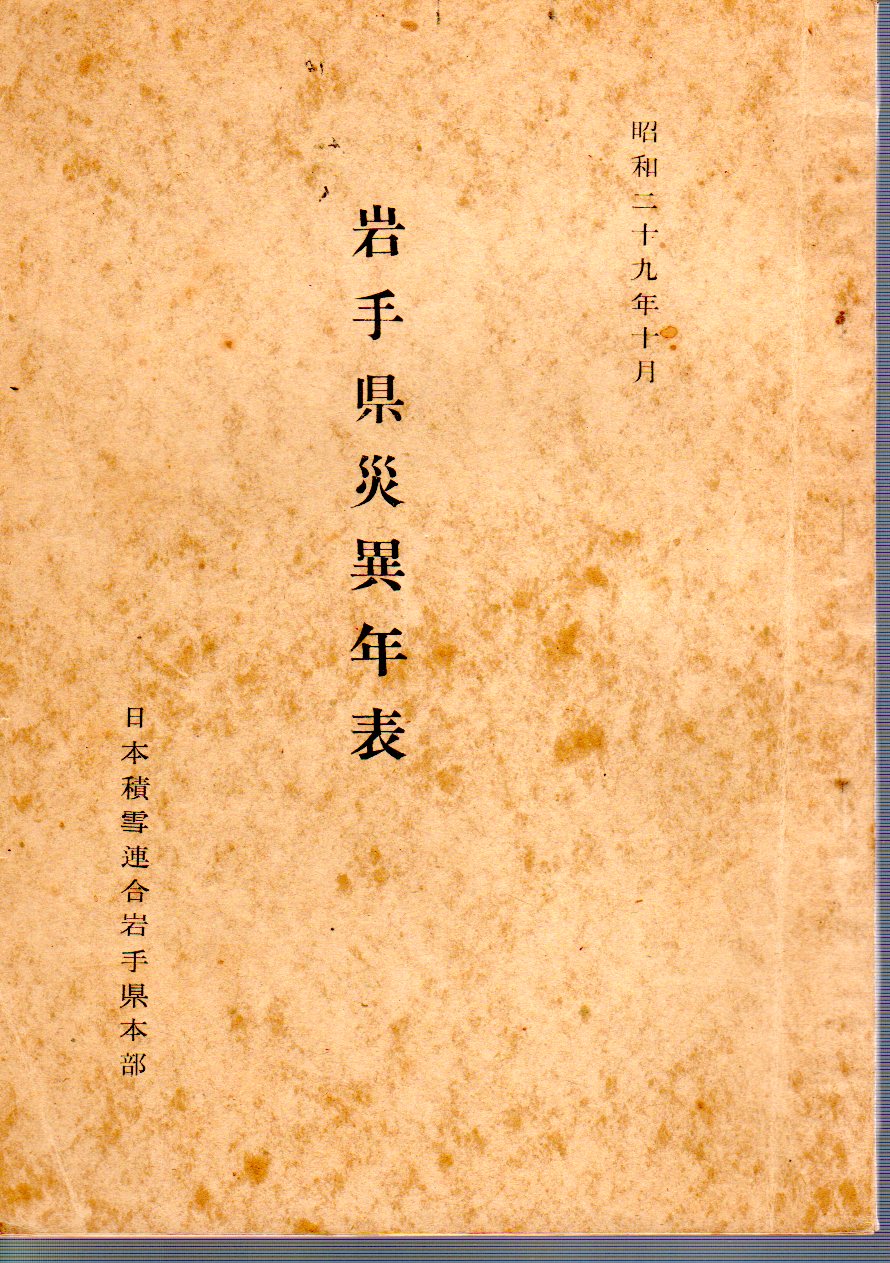 昭和二十九年十月
岩手県災異年表
日本積雪連合岩手県本部